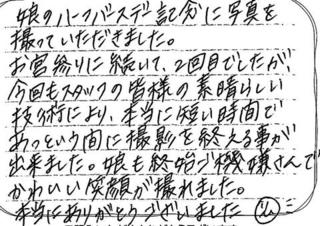 娘のハーフバースデー記念に写真を
撮っていただきました。
お宮参りに続いて、2回目でしたが、
今回もスタッフの皆様の素晴らしい
技術により、本当に短い時間で
あっという間に撮影を終える事が
出来ました。娘も終始ご機嫌さんで
かわいい笑顔が撮れました。
本当にありがとうございました